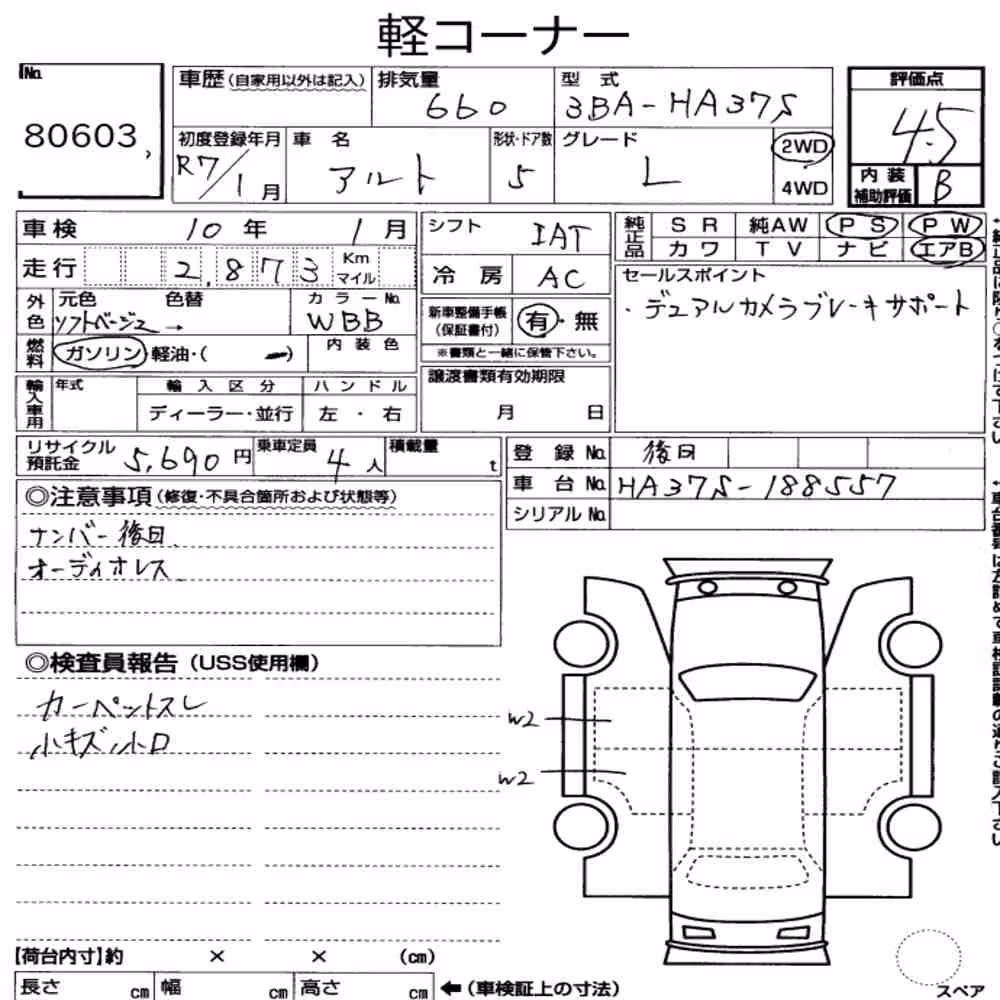 軽コーナー
No.
80603
車歴(自家用以外は記入)
排気量
660
型式
3BA-HA37S
評価点
4.5
初度登録年月
R7/1月
車名
アルト
形状・ドア数
5
グレード
L
2WD
4WD
内装補助評価
B
車検 10年 1月
シフト
IAT
純正品
SR 純AW PS PW
カワ TV ナビ エアB
走行 2,873 Km マイル
冷房
AC
セールスポイント
・デュアルカメラブレーキサポート
外色
元色 色替
ソフトベージュ→
カラーNo.
WBB
新車整備手帳(保証書付)
有・無
※書類と一緒に保管下さい。
燃料
ガソリン・軽油・( ー )
内装色
譲渡書類有効期限
月 日
輸入車用
年式
輸入区分
ディーラー・並行
ハンドル
左・右
リサイクル預託金 5,690円
乗車定員
4人
積載量
t
登録No. 後日
車台No. HA37S-188557
シリアルNo.
◎注意事項(修復・不具合箇所および状態等)
ナンバー後日、
オーディオレス
◎検査員報告(USS使用欄)
カーペットスレ
小キズ小凹
W2
W2
【荷台内寸】約 × × (cm)
長さ cm 幅 cm 高さ cm ←(車検証上の寸法)
スペア